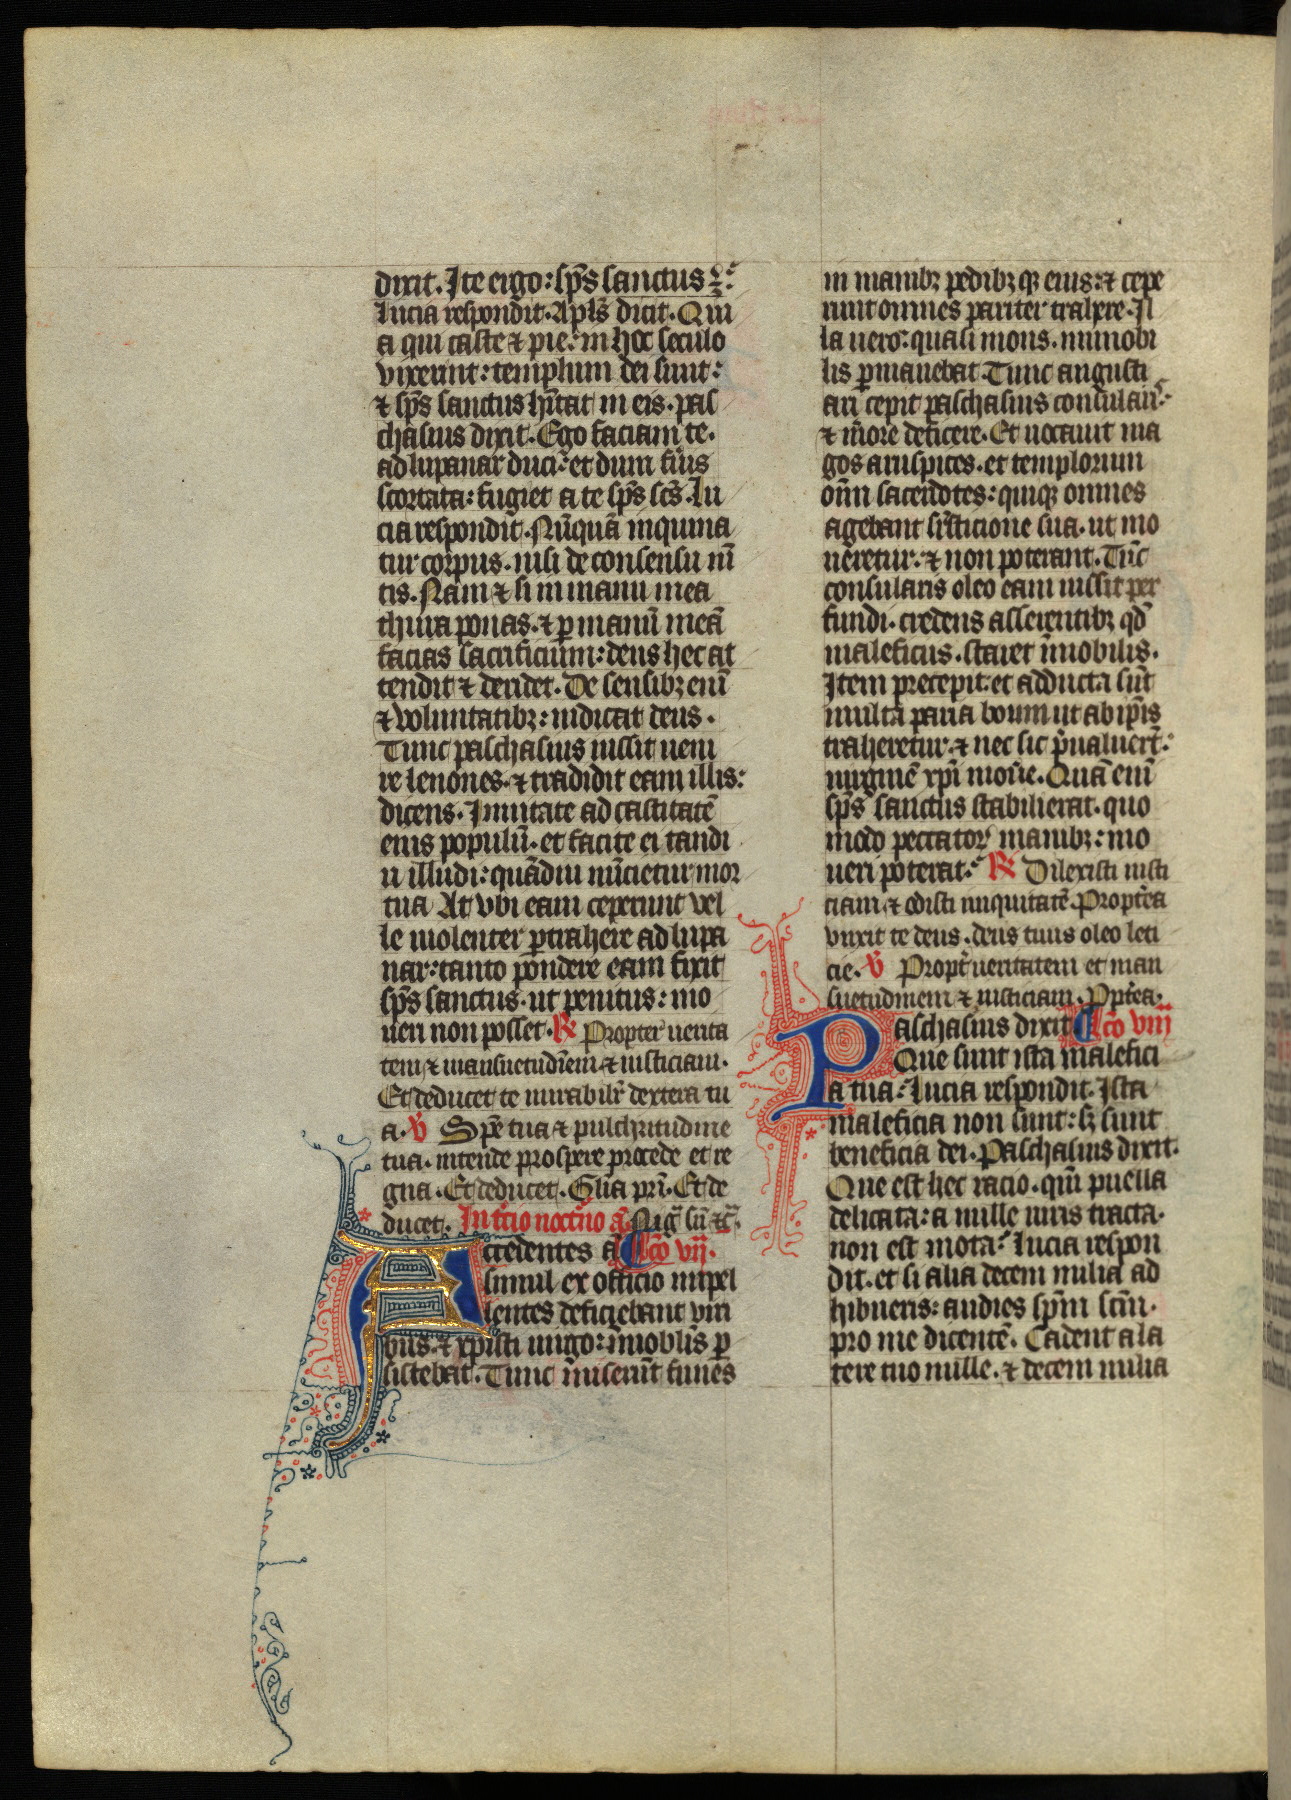 dixit. Ite ergo: sp̄s sanctus
lucia respondit. Apl̄s dicit. Qui
a qui caste ⁊ pie: in hoc seculo
vixerint: templum dei sunt:
⁊ sp̄s sanctus hītat in eis. pas
chasius dixit. Ego faciam te.
ad lupanar duci: et dum fūis
scortata: fugiet a te sp̄s sc̄s. Lu
cia respondit. Nūquā inquina
tur corpus. nisi de consensu m̄
tis. Nam ⁊ si in manu mea
thura ponas. ⁊ p manū meā
facias sacrificium: deus hec at
tendit ⁊ deridet. De sensibꝫ enī
⁊ voluntatibꝫ: iudicat deus.
Tunc paschasius iussit veni
re lenones. ⁊ tradidit eam illis:
dicens. Inuitate ad castitatē
eius populū. et facite ei tandi
u illudi: quādiu nūcietur mor
tua At vbi eam ceperunt vel
le violenter ptrahere ad lupa
nar: tanto pondere eam fixit
sp̄s sanctus. ut penitus: mo
ueri non posset. ℟ Propter uerita
tem ⁊ mansuetudīem ⁊ iusticiam.
Et deducet te mirabilr̄ dextera tu
a. ℣ Spē tua ⁊ pulchritudine
tua. intende prospere procede et re
gna. Et deducet. Glīa pr̄i. Et de
ducet. In t̄cio noct̄no a᷑. Nig᷑ sū ⁊c̄.
Accedentes a᷑ Lc̄o vij.
simul ex officio inpel
lentes deficiebant viri
onis. ⁊ xp̄isti uirgo: īmobilis p
sistebat. Tunc īmiserūt funes
in manibꝫ pedibꝫqꝫ eius: ⁊ cepe
runt omnes pariter trahere. Il
la uero: quasi mons. inmobi
lis pmanebat Tunc angusti
ari cepit paschasius consularis:
⁊ īmore deficere. Et uocauit ma
gos aruspices. et templorum
om̄i sacerdotes: quiqꝫ omnes
agebant sr̄sticione sua. ut mo
ueretur. ⁊ non poterant. Tūc
consularis oleo eam iussit per
fundi. credens asserentibꝫ qd̄
maleficus. staret īmobilis.
Item precepit: et adducta sūt
multa paria boum ut ab ip̄is
traheretur. ⁊ nec sic p̄ualuert̄:
uirginē xp̄i mouē. Quā enī
sp̄s sanctus stabilierat. quo
modo peccator᷑ manibꝫ: mo
ueri poterat. ℟ Dilexisti iusti
ciam ⁊ odisti iniquitatē Propt̄ea
vnxit te deus. deus tuus oleo leti
cie. ℣ Propt̄ ueritatem et man
suetudinem ⁊ iusticiam. Ppt̄ea.
Paschasius dixit Lc̄o viij
Que sunt ista malefici
a tua: Lucia respondit. Ista
maleficia non sunt: sꝫ sunt
beneficia dei. Paschasius dixit.
Que est hec racio. qm̄ puella
delicata: a mille uiris tracta.
non est mota: Lucia respon
dit. et si alia decem milia ad
hibueris: audies sp̄m sc̄m.
pro me dicentē. Cadent a la
tere tuo mille. ⁊ decem milia